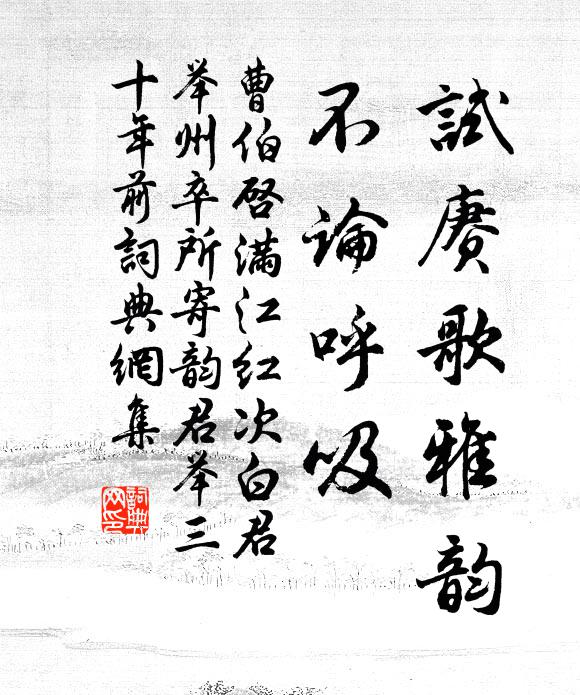 試賡歌雅韵
不論呼吸
曹伯啓滿江红次白君
举州卒所寄韵君举三
十年前詞典網集
詞典
网印